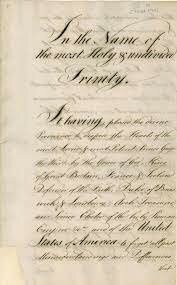 In the Name of
the most Holy & undivided
Trinity.
It having pleased the divine
Providence to dispose the Hearts of the
most Serene & most Potent Prince George
the third, by the Grace of God, King
of Great Britain, France & Ireland,
Defender of the Faith, Duke of Bruns
wick & Lunebourg, Arch Treasurer,
and Prince Elector of the holy Roman
Empire &ca and of the United
States of America to forget all past
Misunderstandings and Differences
that